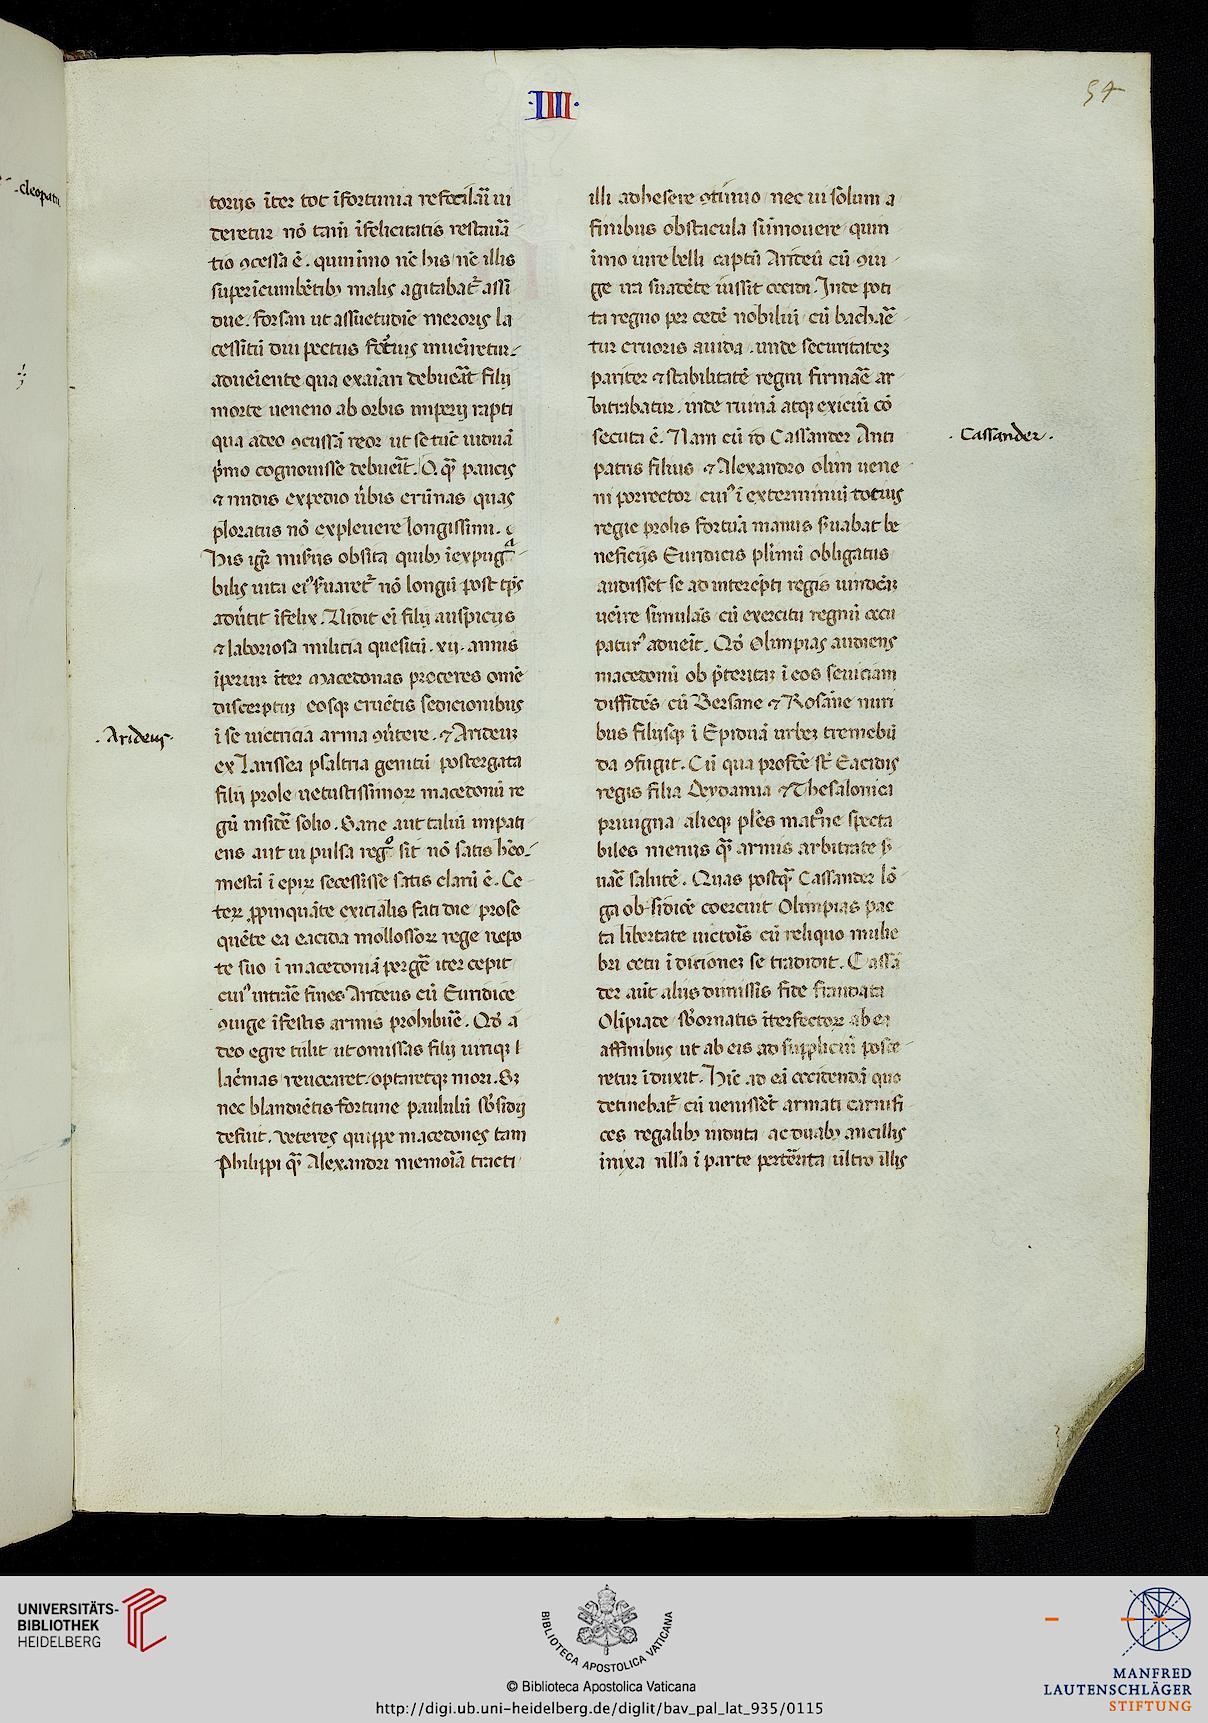 ·IIII·
54
·cleopatr
toriis īter tot īfortunia refocilaī ui
deretur nō tam̄ īfelicitatis restaurā
tio ɔcessa ē. quin īmo nē his nē illis
superīcumbētibꝫ malis agitabat᷑ assi
due. forsan ut assuetudīe meroris la
morte ueneno ab orbis imperij rapti
qua adeo ɔcussā reor ut se tūc uiduā
p̄mo cognouisse debuer̄it. O qͣꝫ paucis
⁊ nudis expedio ūbis erūnas quas
ploratus nō expleuere longissimi.
bilis uita ei⁹ ẜuaret᷑ nō longū post tp̄s
adūtit īfelix. Vidit ei filij auspicijs
⁊ laboriosa milicia quesitū. xii. annis
īperiuꝫ īter macedonas proceres om̄e
discerptuꝫ eosqꝫ cruētis sedicionibus
ī se uictricia arma ɔūtere. ⁊ Arideuꝫ
·Arideus·
ex Larissea psaltria genitū postergata
filij prole uetustissimoꝝ macedonū re
gū insidē solio. Sane aut talium impati
ens aut ui pulsa regͦ sit nō satis hēo
mestā ī epiꝝ secessisse satis clarū ē. Ce
teꝝ ꝓpinquāte exicialis fati die prose
quēte ea eacida mollossoꝝ rege nepo
te suo ī macedoniā pergē iter cepit
cui⁹ intrāe fines Arideus cū Euridice
ɔiuge īfestis armis prohibuē. Qd̄ a
deo egre tulit ut omissas filij uiriqꝫ l
lac̄mas reuocaret optaretqꝫ mori. Sꝫ
nec blandiētis fortune paululū sb̄sidij
defuit. veteres quippe macedones tam
Philippi qͣꝫ Alexandri memoīa tracti
illi adhesere ɔtinuo nec ui solum a
finibus obstacula sūmouere quin
īmo iure belli captū Arideū cū ɔiu
ge ita suadēte iussit occidi. Inde poti
ta regno per cedē nobiliuꝫ cū bachāe
tur cruoris auida. unde securitateꝫ
pariter ⁊ stabilitatē regni firmāe ar
bitrabatur. inde ruinā atqꝫ exiciū cō
secuta ē. Nam cū io Cassander Anti
·Cassander·
patris filius ⁊ Alexandro olim uene
ni porrector cui⁹ ī exterminiuꝫ totius
regie prolis fortūa manus ẜuabat be
neficijs Euridicis pl̄imū obligatus
audisset se ad interēpti regis uindcāꝫ
ueīre simulās cū exercitu regnū occu
patur⁹ adueīt. Qd̄ Olimpias audiens
macedonū ob p̄teritaꝫ ī eos seuiciam
diffidēs cū Bersane ⁊ Rosāne nuri
bus filijsqꝫ ī Epidnā urbeꝫ tremebū
da ɔfugit. Cū qua profcē sr̄ Eacidis
regis filia Deydamia ⁊ Thesalonica
priuigna alieqꝫ pl̄es mat᷑ne specta
biles menijs qͣꝫ armis arbitrate ẜ
uāe salutē. Quas postqͣꝫ Cassander lō
ga obsidiōe coercuit Olimpias pac
ta libertate uictoīs cū reliquo mulie
bri cetu ī dicioneꝫ se tradidit. Cassā
der aūt alijs dimissis fide fraudata
Olīpiade sb̄ornatis īterfectoꝝ ab ea
affinibus ut ab eis ad suppliciū posce
retur īduxit. Hīc ad eā occidendā quo
detinebat᷑ cū uenisset armati carnifi
ces regalibꝫ induta ac duabꝫ ancillis
īnixa nll'a ī parte perterrita ultro illis
UNIVERSITÄTS-
BIBLIOTHEK
HEIDELBERG
BIBLIOTECA APOSTOLICA VATICANA
© Biblioteca Apostolica Vaticana
http://digi.ub.uni-heidelberg.de/diglit/bav_pal_lat_935/0115
MANFRED
LAUTENSCHLÄGER
STIFTUNG